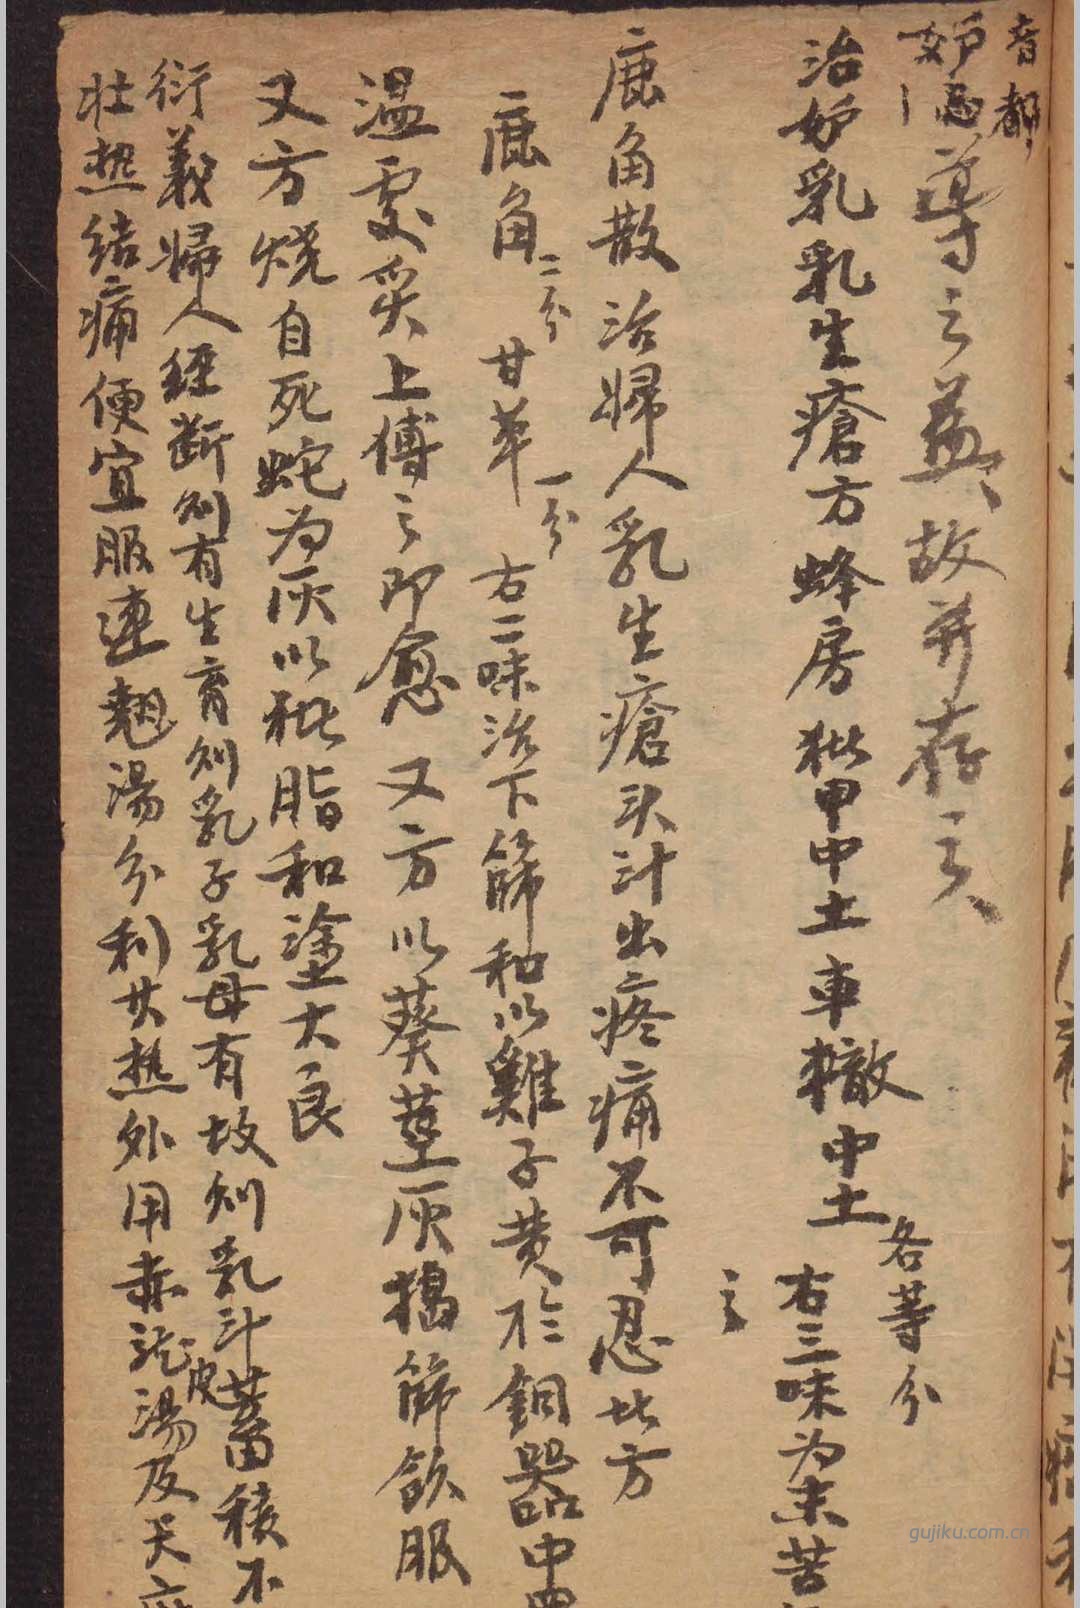 音都
妒隱導之益、故并存之、
治妒乳乳生瘡方 蜂房 犲甲中土 車轍中土 各等分 右三味為末苦
之
鹿角散 治婦人乳生瘡头汁出疼痛不可忍此方
鹿角二分 甘草一分 右二味治下篩和以雞子黄於銅器中
温處炙上傅之即愈 又方以葵莖灰搗篩飲服
又方烧自死蛇為灰以猪脂和塗大良
衍義婦人經断則有生育則乳子乳母有故則乳汁蓄積不
壮热结痛便宜服連翹湯分利其热外用赤龍皮湯及天
gujiku.com.cn